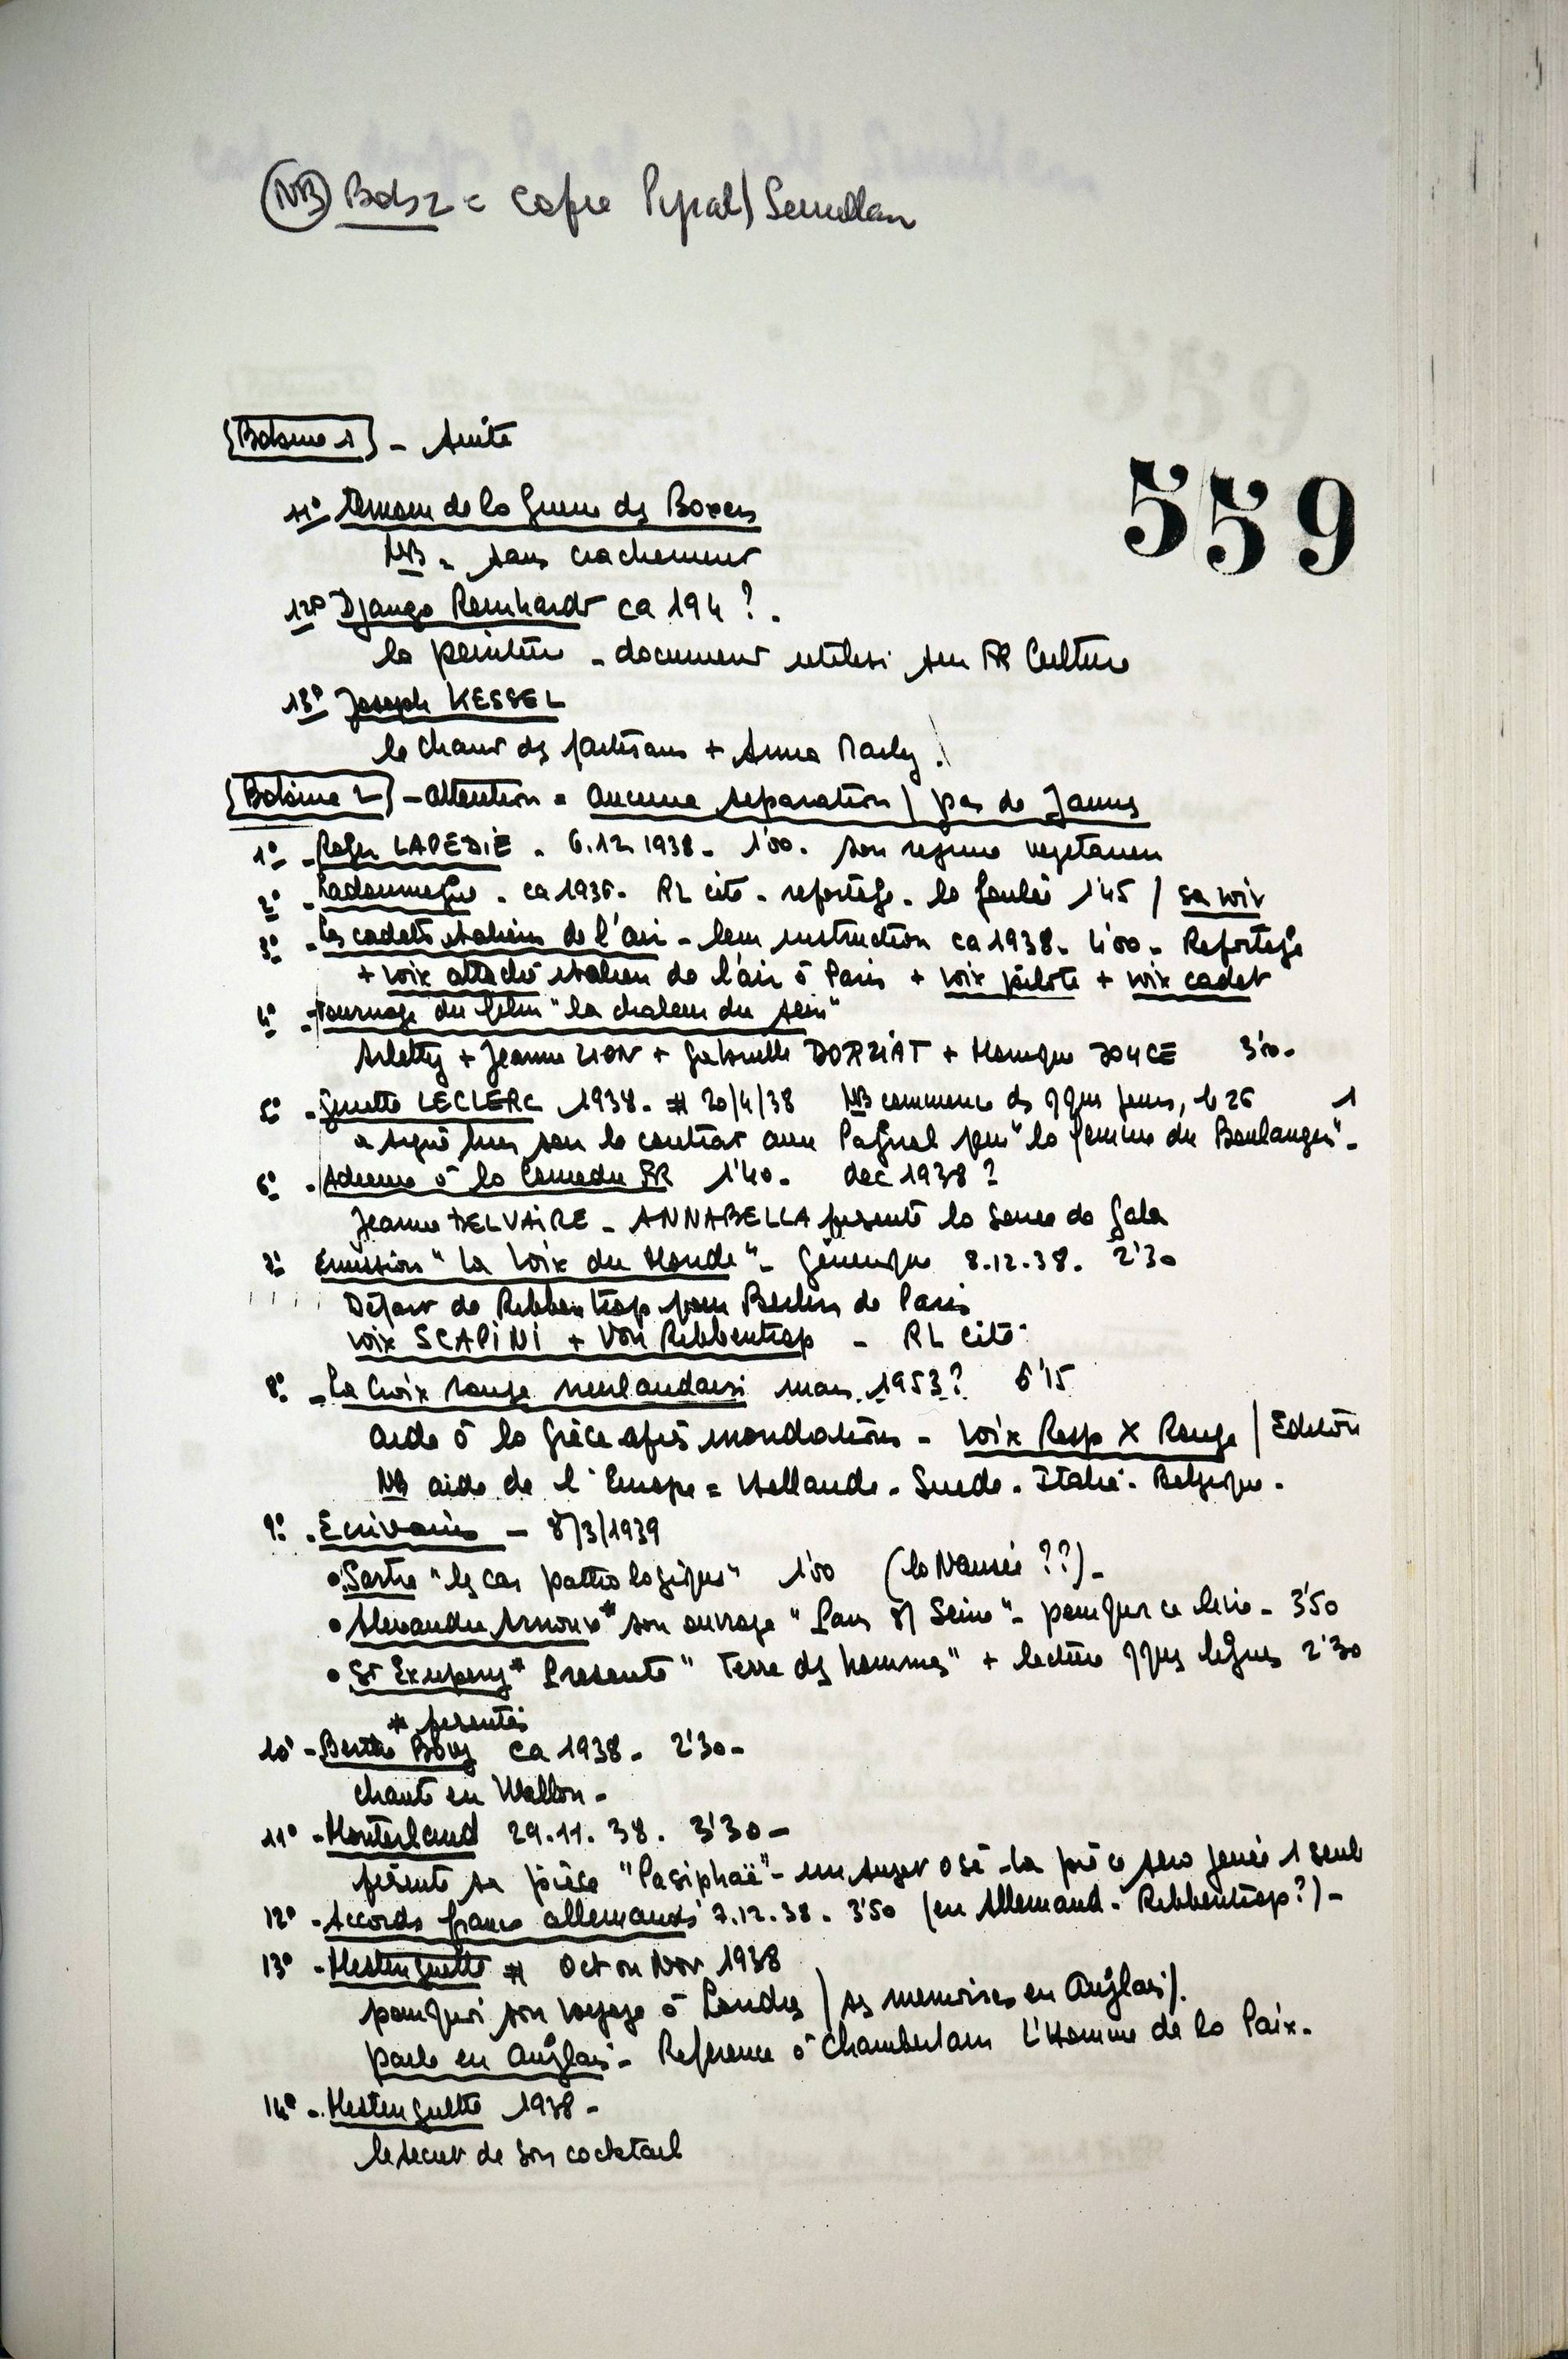 NB Bob 2 = copie Pypal / Semellan
Bobine 1 - suite
559
11° Temoin de la Guerre des Boxers
NB = sans crachement
12° Django Reinhardt ca 194 ?.
la peinture - document utilisé sur FR Culture
13° Joseph KESSEL
le chant des partisans + Anna Marly.
Bobine 2 - attention = aucune separation / pas de Jaunes
1° - Roger LAPEDIE - 6.12 1938 - 1'00. son regime vegetarien
2° - Ladoumegue - ca 1936 - RL cité - reportage - la foulée 1'45 / sa voix
3° - les cadets italiens de l'air - leur instruction ca 1938 - 4'00 - Reportage
+ voix attaché italien de l'air à Paris + voix pilote + voix cadet
4° - Tournage du film "la chaleur du sein"
Arletty + Jeanne LION + Gabrielle DORZIAT + Monique JOYCE 3'10 -
5° - Ginette LECLERC 1938 - # 20/4/38 NB commence ds qques jours, le 26 1
a signé hier soir le contrat avec Pagnol pour "la femme du Boulanger" -
6° - Adieux à la Comedie FR 1'40 - dec 1938 ?
Jeanne DELVAIRE - ANNABELLA presente la soirée de Gala
7° Emission "la Voix du Monde" - Générique 8.12.38. 2'30
Départ de Ribbentrop pour Berlin de Paris
voix SCAPINI + Von Ribbentrop - RL cité
8° - La Croix rouge neerlandaise mars 1953 ? 6'15
aide à la Grèce après inondations - voix Resp X Rouge / Edition
NB aide de l'Europe = Hollande - Suede - Italie - Belgique.
9° - Ecrivains - 8/3/1939
• Sartre "les cas pathologiques" 1'00 (la Nausée ??) -
• Alexandre Arnoux* son ouvrage "Paris s/ Seine" - pourquoi ce livre - 3'50
• St Exupery* Presente "Terre des hommes" + lecture qques lignes 2'30
* presentés
10° - Berthe Bovy ca 1938 - 2'30 -
chante en Wallon -
11° - Monterland 29.11.38. 3'30 -
présente sa pièce "Pasiphaë" - un sujet osé - la pièce sera jouée 1 seule
12° - Accords franco allemands 7.12.38 - 3'50 (en Allemand - Ribbentrop ?) -
13° - Mistinguette # Oct ou Nov 1938
pourquoi son voyage à Londres / ses memoires en Anglais /.
parle en Anglais - Reference à Chamberlain L'Homme de la Paix -
14° - Mistinguette 1938 -
le secret de son cocktail